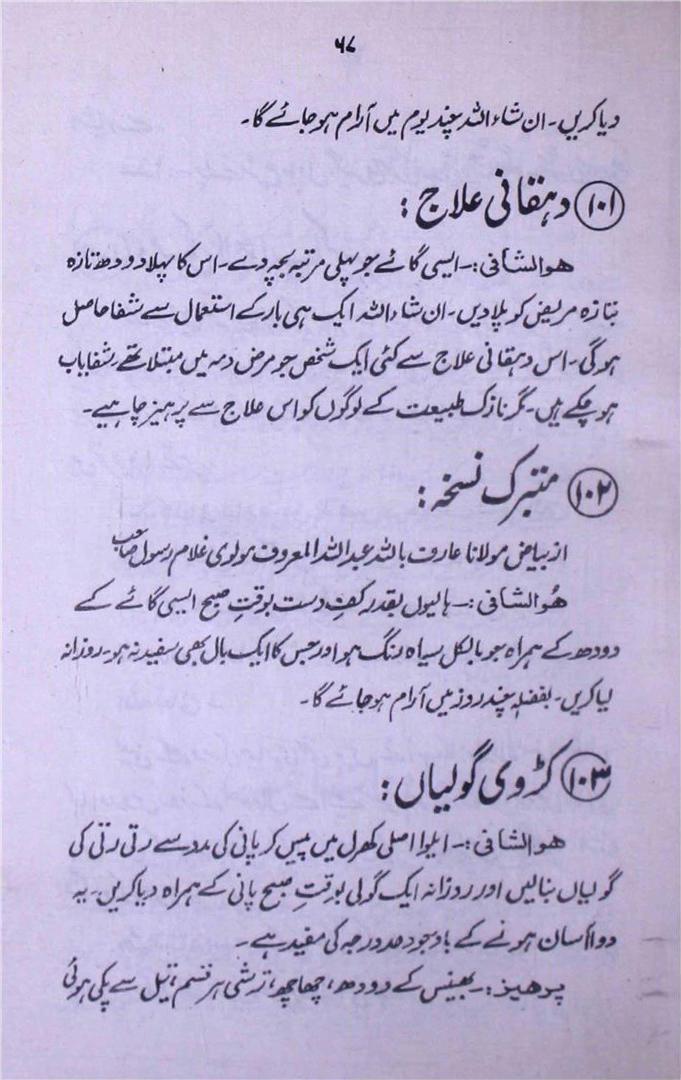 ۶۷
دیا کریں۔ ان شاء اللہ چند یوم میں آرام ہو جائے گا۔
۱۰۱ دہقانی علاج :
ھو الشافی :۔ ایسی گائے جو پہلی مرتبہ بچہ دے۔ اس کا پہلا دودھ تازہ
بتازہ مریض کو پلا دیں۔ ان شاء اللہ ایک ہی بار کے استعمال سے شفا حاصل
ہو گی۔ اس دہقانی علاج سے کئی ایک شخص جو مرض دمہ میں مبتلا تھے، شفا یاب
ہو چکے ہیں۔ مگر نازک طبیعت کے لوگوں کو اس علاج سے پرہیز چاہیے۔
۱۰۲ متبرک نسخہ :
از بیاض مولانا عارف باللہ عبداللہ المعروف مولوی غلام رسول صاحب
ھُو الشافی :۔ ہالیوں بقدر کفِ دست بوقتِ صبح ایسی گائے کے
دودھ کے ہمراہ جو بالکل سیاہ رنگ ہو اور جس کا ایک بال بھی سفید نہ ہو۔ روزانہ
لیا کریں۔ بفضلہٖ چند روز میں آرام ہو جائے گا۔
۱۰۳ کڑوی گولیاں :
ھو الشافی :۔ ایلوا اصلی کھرل میں پیس کر پانی کی مدد سے رتی رتی کی
گولیاں بنا لیں اور روزانہ ایک گولی بوقتِ صبح پانی کے ہمراہ دیا کریں۔ یہ
دوا آسان ہونے کے باوجود حد درجہ کی مفید ہے۔
پرھیز :۔ بھینس کے دودھ، چھاچھ، ترشی ہر قسم، تیل سے پکی ہوئی